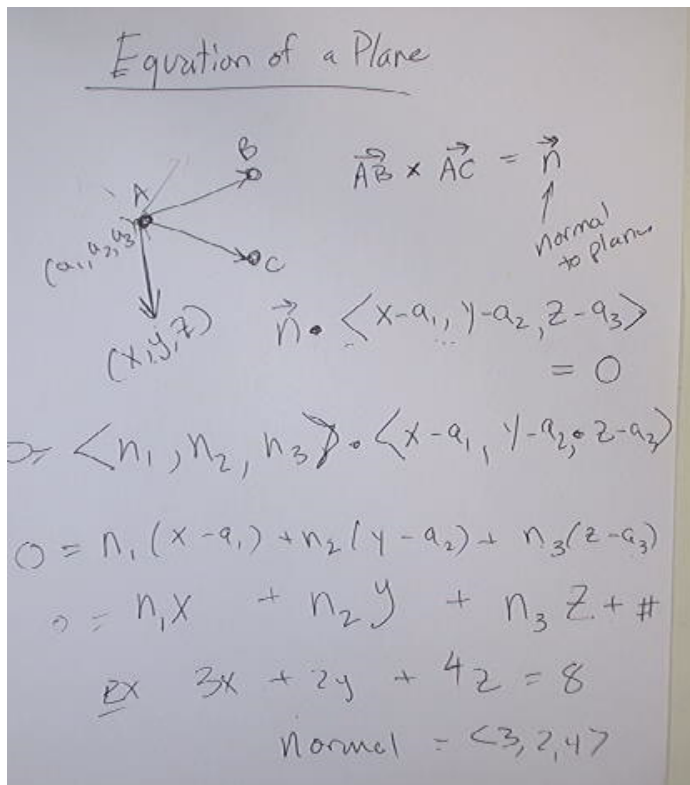 Equation of a Plane
B
A
(a₁, a₂, a₃)
C
(x,y,z)
AB⃗ × AC⃗ = n⃗
normal
to plane
n⃗ • <x-a₁, y-a₂, z-a₃>
= 0
0 = <n₁, n₂, n₃> • <x-a₁, y-a₂, z-a₃>
0 = n₁(x-a₁) + n₂(y-a₂) + n₃(z-a₃)
0 = n₁x + n₂y + n₃z + #
Ex 3x + 2y + 4z = 8
normal = <3,2,4>